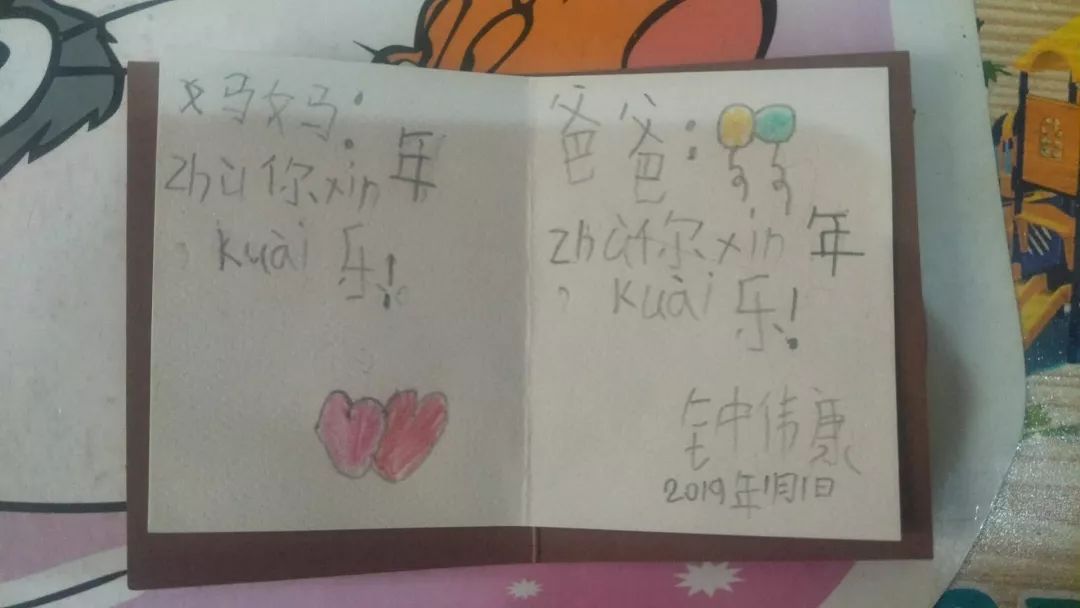 妈妈:
zhù你xin年
kuài乐!
爸爸:
zhù你xin年
kuài乐!
钟伟康
2019年1月1日